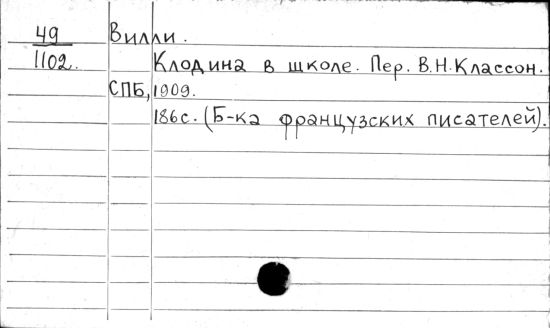 49 Вилли.
1102. Клодина в школе. Пер. В.Н.Классон.
СПБ, 1909.
186с. (Б-ка французских писателей).